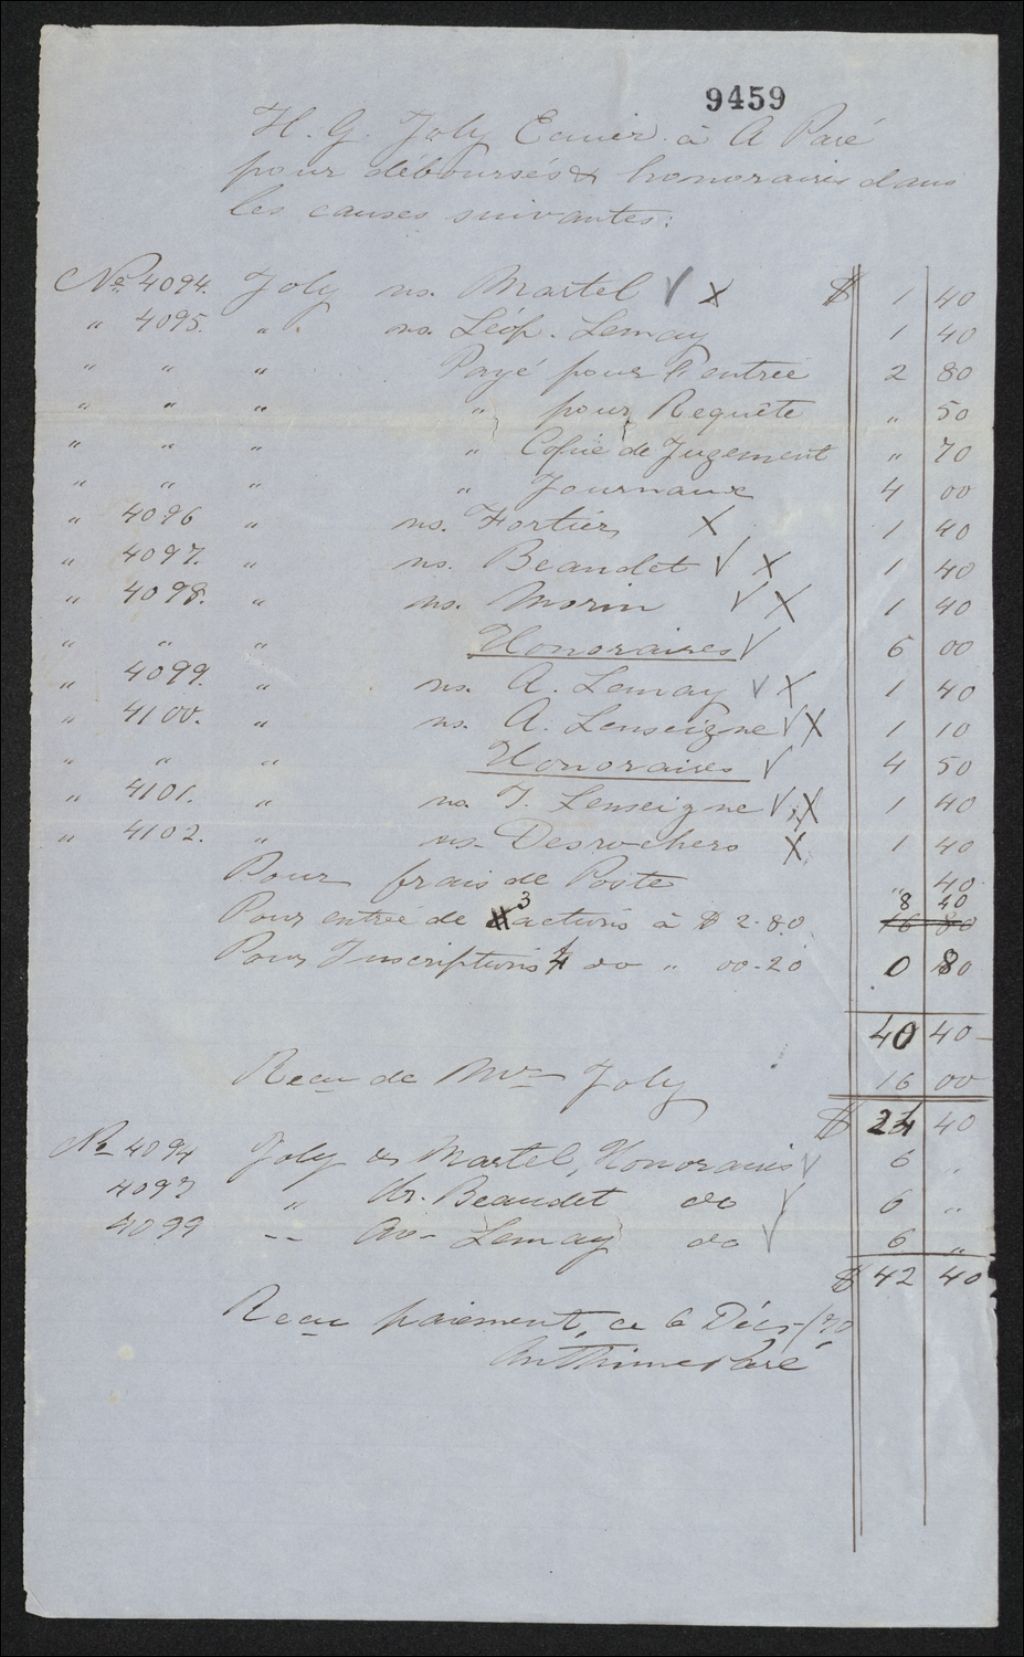 9459
H. G. Joly Ecuier à A Paré
pour déboursés & honoraires dans
les causes suivantes:
No. 4094. Joly vs. Martel √ X $ 1 40
" 4095. " vs. Léop. Lemay 1 40
" " " Payé pour l'entrée 2 80
" " " " pour Requête " 50
" " " " Copie de Jugement " 70
" " " " Journaux 4 00
" 4096 " vs. Fortier X 1 40
" 4097. " vs. Beaudet √ X 1 40
" 4098. " vs. Morin √ X 1 40
" " " Honoraires √ 6 00
" 4099. " vs. A. Lemay √ X 1 40
" 4100. " vs. A. Lenseigne √ X 1 10
" " " Honoraires √ 4 50
" 4101. " vs J. Lenseigne √ X 1 40
" 4102. " vs. Desrochers X 1 40
Pour frais de Poste " 40
Pour entrée de 3 actions à $ 2.80 8 40
16 80
Pour Inscriptions 4 do " 00.20 0 80
40 40
Reçu de Mr Joly 16 00
$ 24 40
No 4094 Joly vs Martel, Honoraires √ 6 "
4097 " vs. Beaudet do √ 6 "
4099 -- vs- Lemay do √ 6 "
$ 42 40
Reçu paiement, ce 6 Décr /70
Anthime Paré